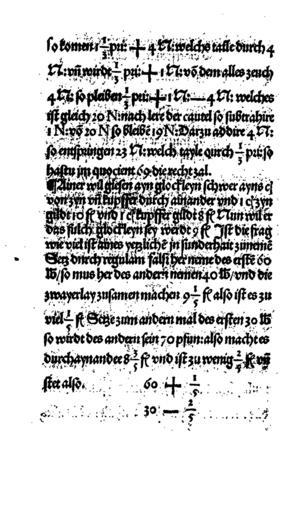 so komen 1 1/3 pri: + 4 N: welchs taile durch 4
N: vñ wirdt 1/3 pri: + 1 N: võ dem alles zeuch
4 N: so pleiben 1/3 pri: + 1 N: — 4 N: welches
ist gleich 20 N: nach lere der cautel so subtrahire
1 N: võ 20 N so bleibẽ 19 N: Darzu addire 4 N:
so entspringen 23 N: welch tayle durch 1/3 pri: so
hastu im quocient 69 die recht zal.
¶ Ainer wil giesen ayn glöcklein schwer ayns
von zyn vñ kupffer durch ainander vnd 1 zyn
gildt 10 fl vnd 1 kupffer gildt 8 fl Nun wil er
das sulch glöcklein sey werdt 9 fl Ist die frag
wie viel ist aines yetzlichẽ in sunderhait zunemẽ
Setz durch regulam falsi her neme des erstẽ 60
lb/so mus her des andern nemen 40 lb/vnd die
zwayerlay zusamen machen 9 1/5 fl also ist es zu
viel 1/5 fl Setze zum andern mal des ersten 30 lb
so wirdt des andern sein 70 pfun: also macht es
durchaynander 8 3/5 fl vnd ist zu wenig 2/5 fl vñ
stet also. 60 + 1/5
30 — 2/5